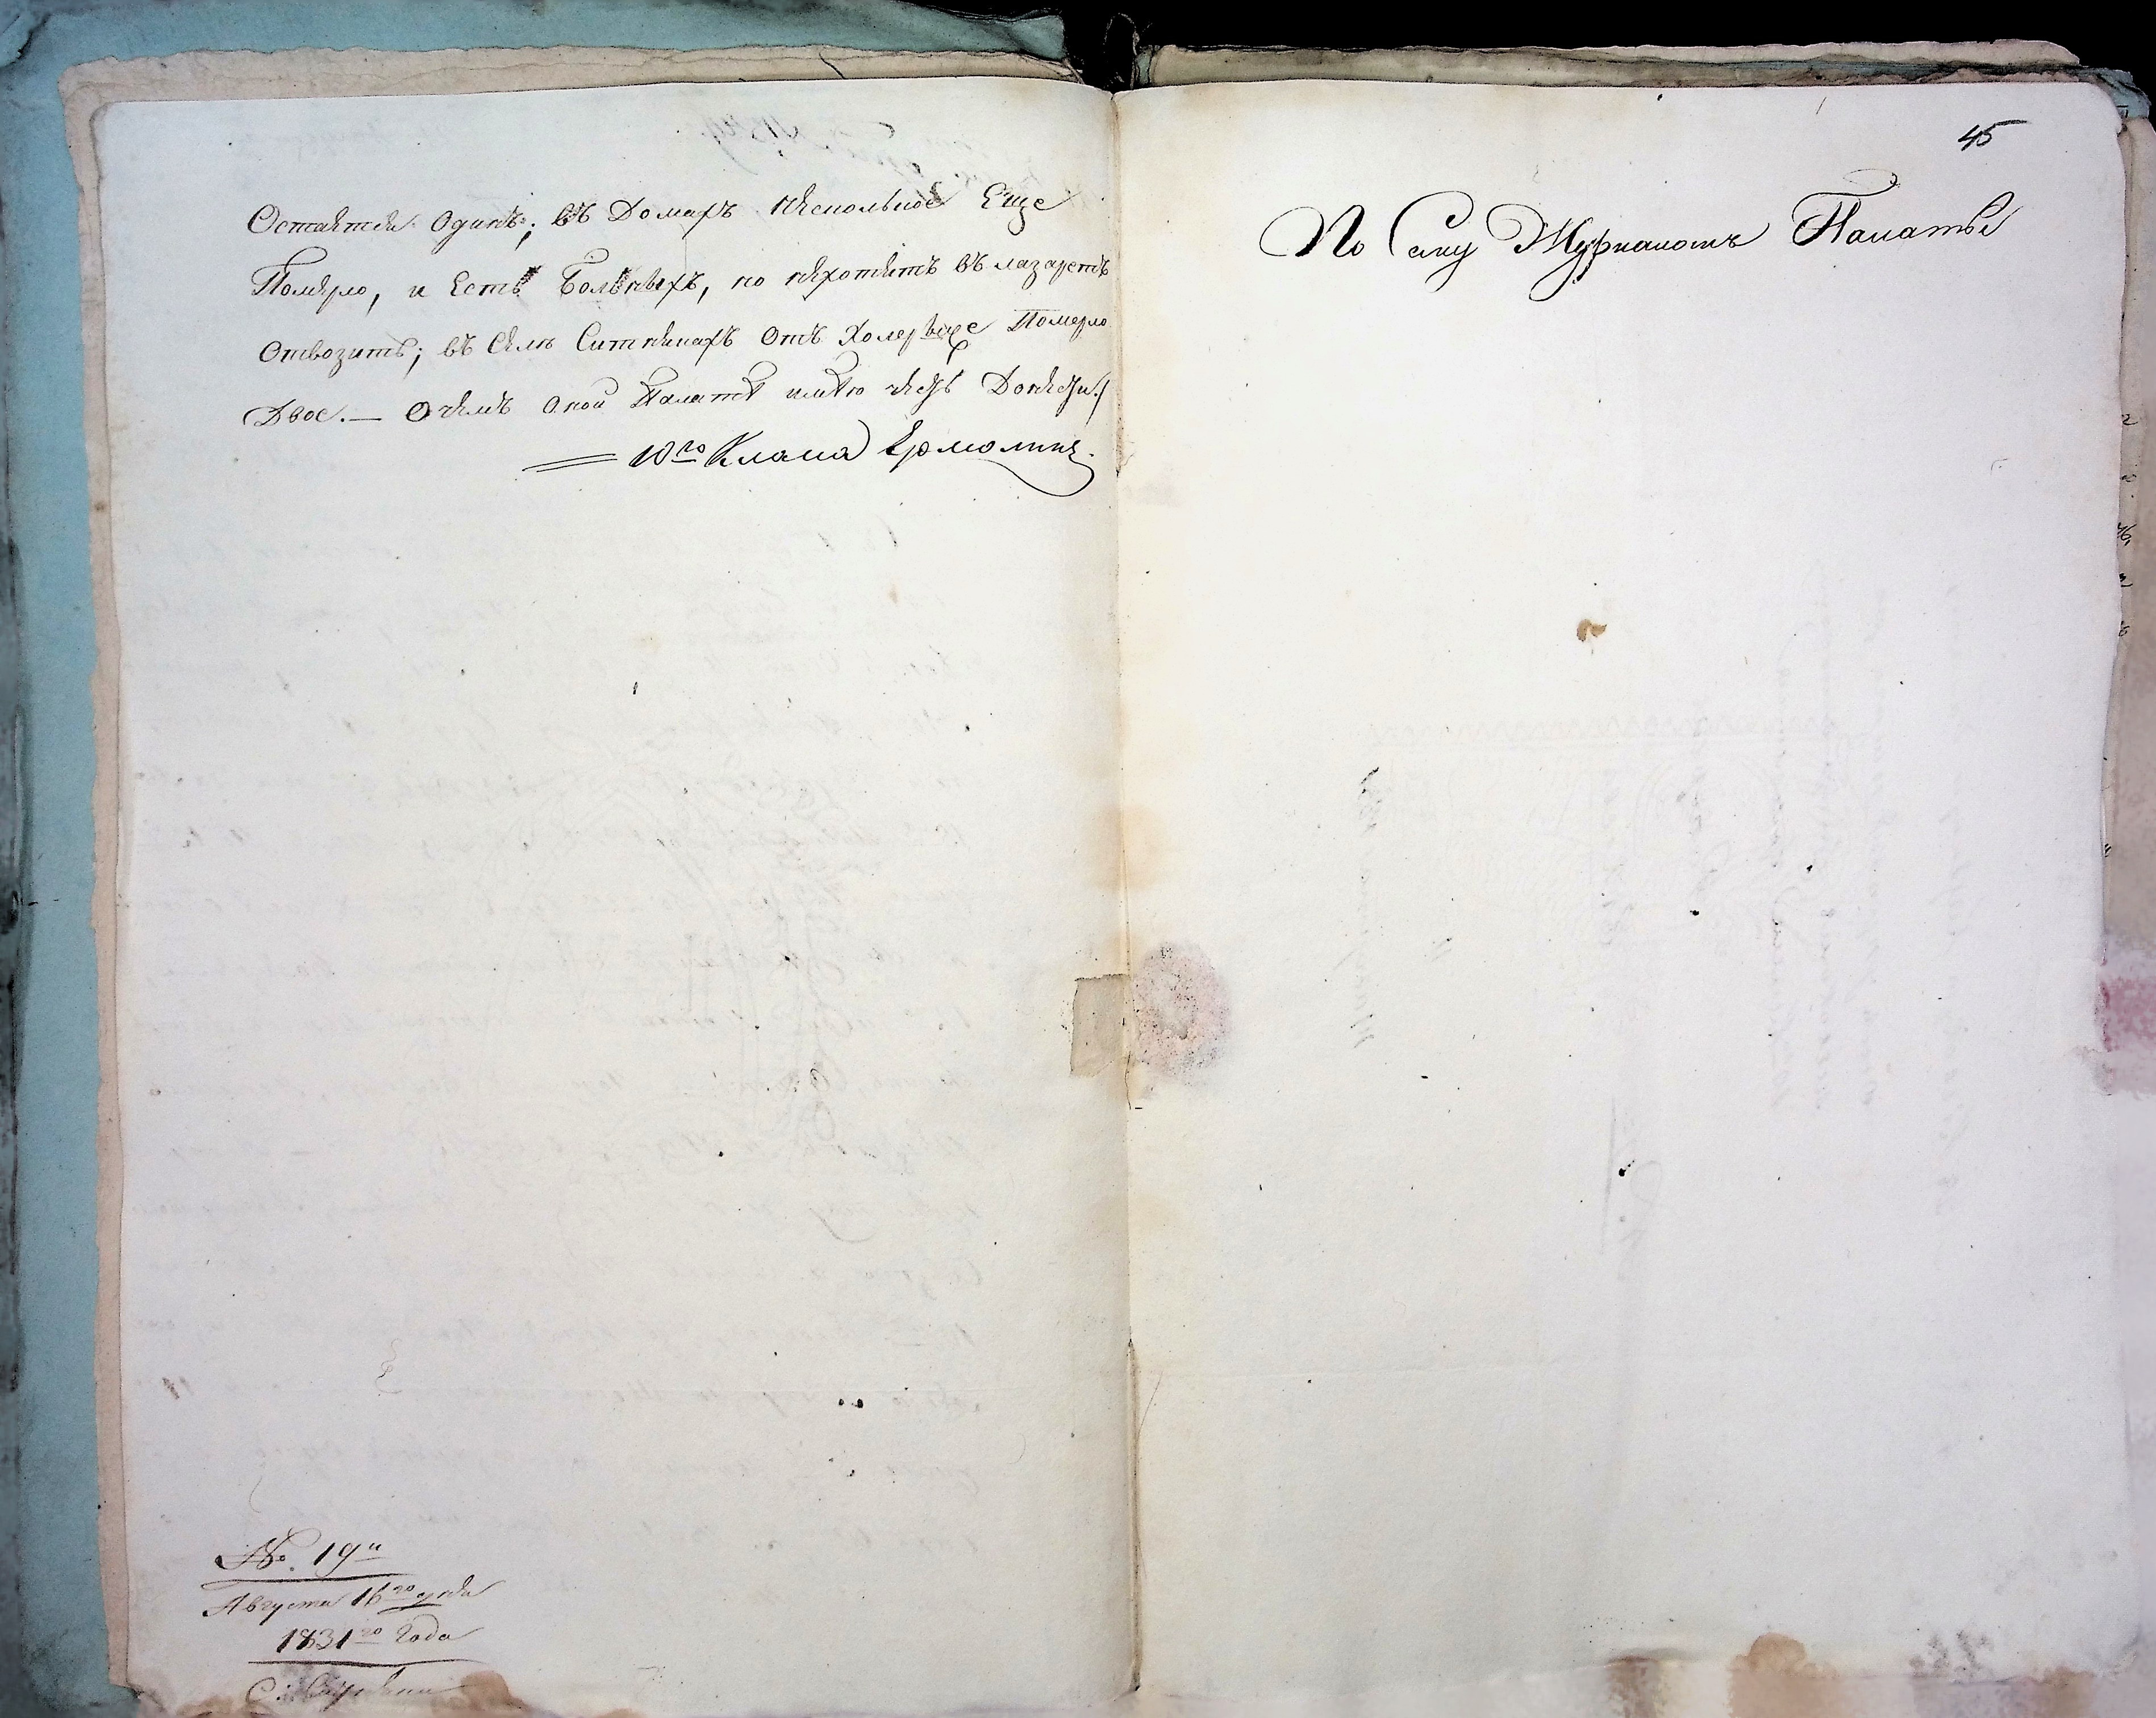 Остаiтся одинъ; въ Домахъ нѣсколько Еще
Помѣрло, и Есть Больныхъ, но нѣхотятъ въ лазаретъ
Отвозить; въ Сѣлѣ Ситникахъ Отъ Холеры же Померло
Двое. — О чѣмъ Оной Палатѣ имѣю чѣсть Донѣсти./
10го Класса Ермолинъ.
№. 19й
Августа 16го дня
1831го Года
С:
45
По Сему Журналомъ Палаты